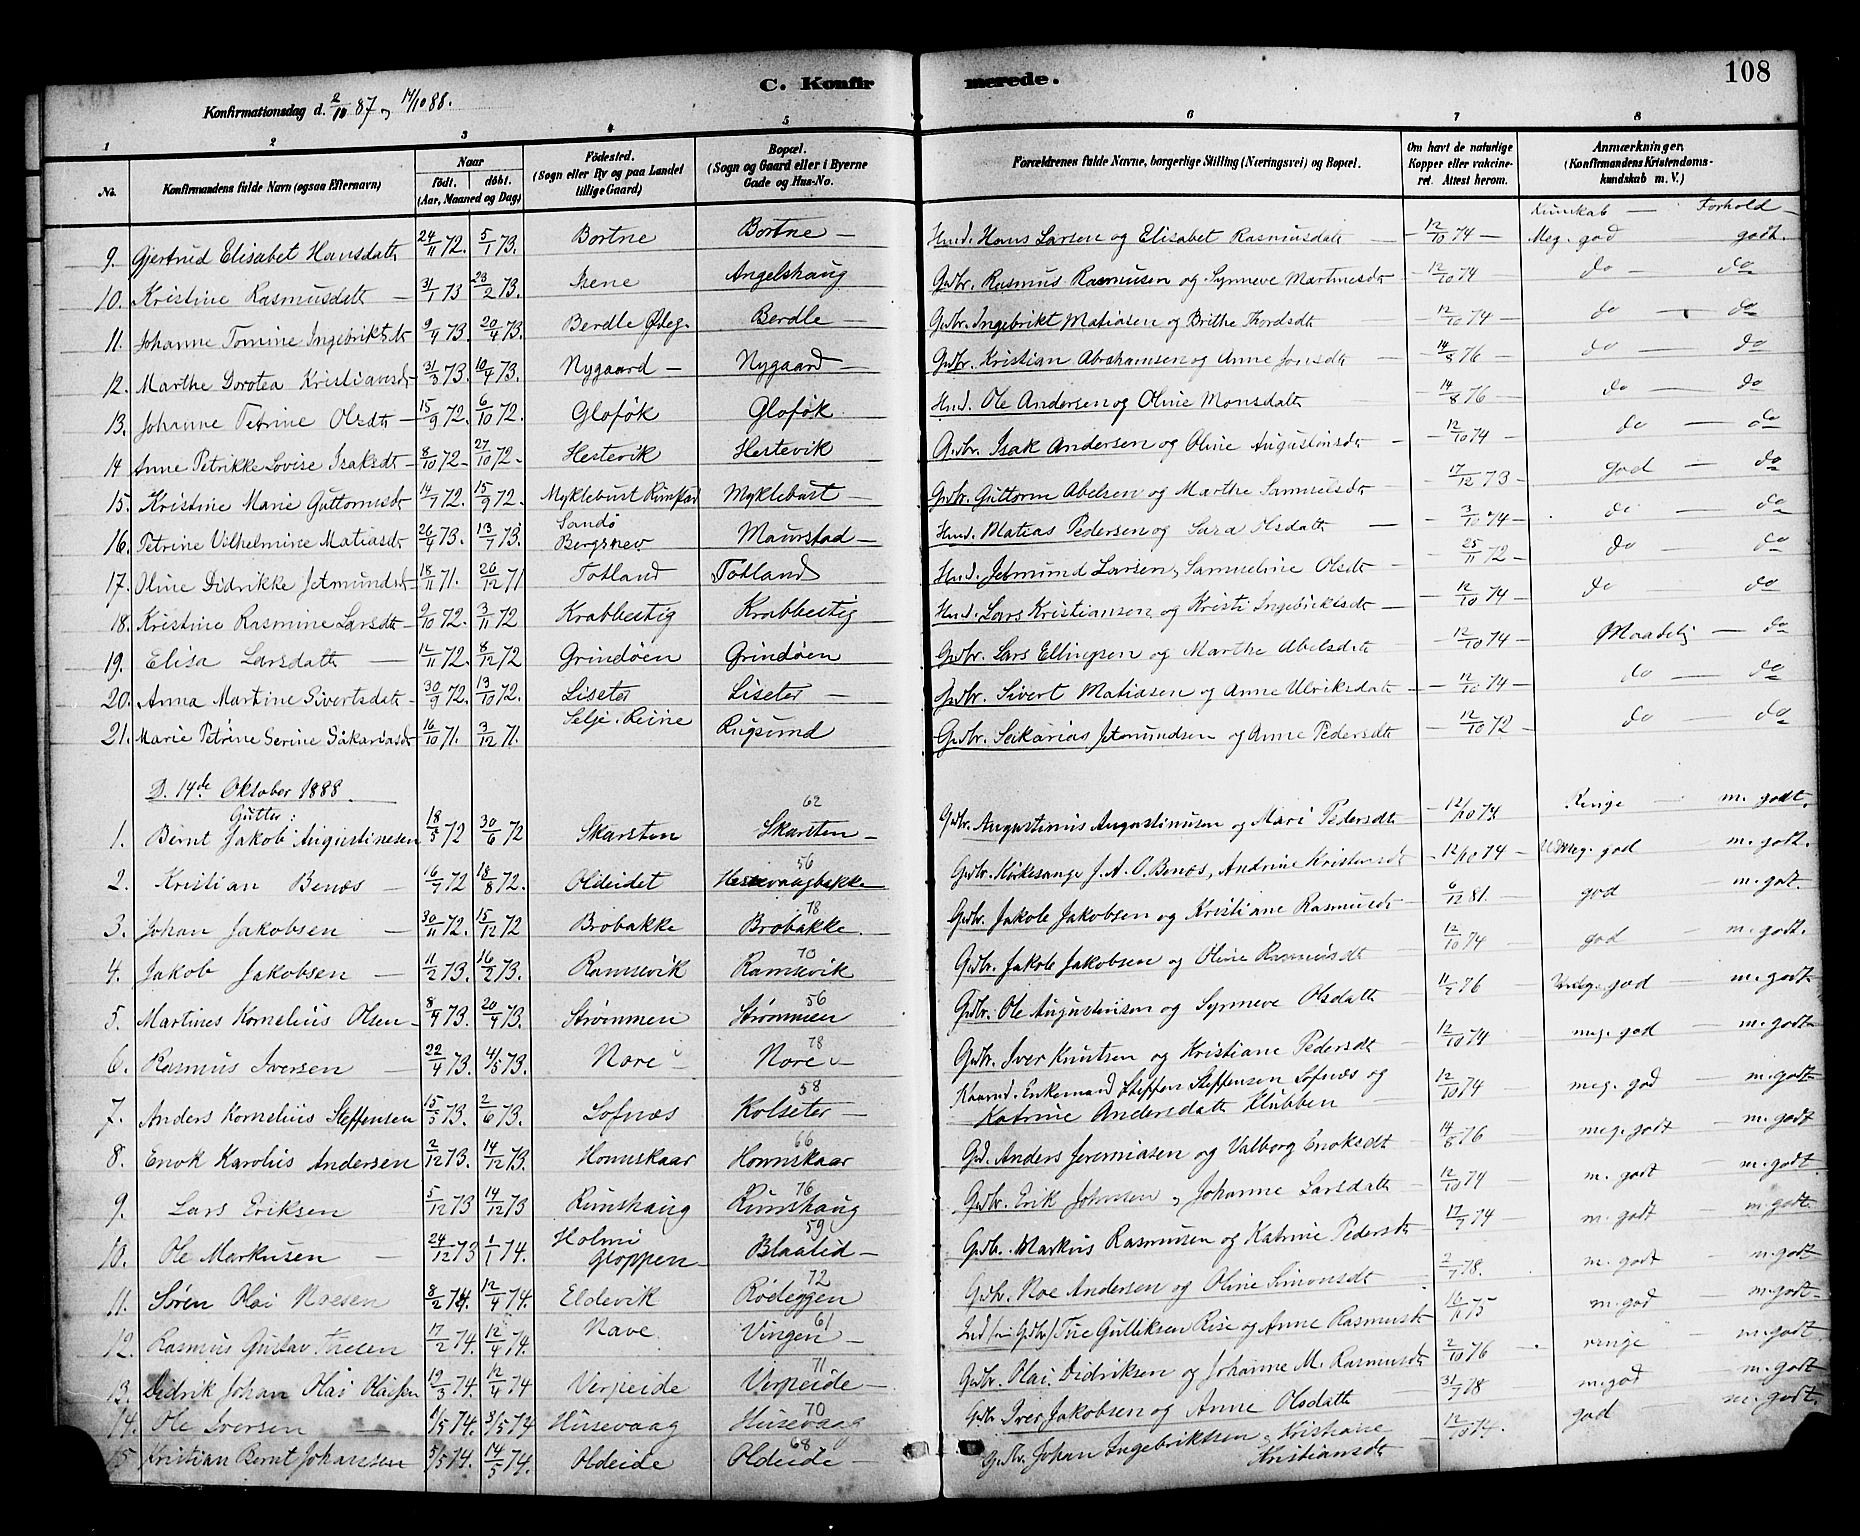 108
C. Konfirmerede.
Konfirmationsdag d. 2/10 87 og 14/10 88.
1 2 3 4 5 6 7 8
No. Konfirmandens fulde Navn (ogsaa Efternavn) Naar födt. döbt. (Aar, Maaned og Dag) Födested. (Sogn eller By og paa Landet tillige Gaard) Bopæl. (Sogn og Gaard eller i Byerne Gade og Hus-No. Forældrenes fulde Navne, borgerlige Stilling (Næringsvei) og Bopæl. Om havt de naturlige Kopper eller vakcineret. Attest herom. Anmærkninger. (Konfirmandens Kristendomskundskab m. V.)
Kunskab — Forhold —
9. Gjertrud Elisabet Hansdatt 24/11 72. 5/1 73. Bortne Bortne — Hmd. Hans Larsen og Elisabet Rasmusdatt — 12/10 74 — Meg. god godt.
10. Kristine Rasmusdatt — 31/1 73 23/2 73. Isene Angelshaug Gdbr. Rasmus Rasmusen og Synneve Martinesdt — 12/10 74 do — do
11. Johanne Tomine Ingebriktsdt 9/4 73. 20/4 73. Berdle Ødeg. Berdle — Gdbr. Ingebrikt Matiasen og Brithe Thordsdt — 12/10 74 — do — do
12. Marthe Dorotea Kristiansdt 31/3 73. 10/4 73. Nygaard — Nygaard — Gdbr. Kristian Abrahamsen og Anne Jonsdt — 14/8 76 — do — do
13. Johanne Petrine Olsdt — 15/9 72. 6/10 72. Gloføk Gloføk. Hmd. Ole Andersen og Oline Monsdatt — 14/8 76 — do — do
14 Anne Petrikke Lovise Isaksdt — 8/10 72 — 27/10 72 — Hestevik Hestevik Gdbr. Isak Andersen og Oline Augustinsdt — 12/10 74 do — do
15. Kristine Marie Guttormsdt 14/7 72. 15/9 72. Myklebust Rimstad Myklebust — Gdbr. Guttorm Abelsen og Marthe Samuelsdt — 17/12 73 — god — do
16. Petrine Vilhelmine Matiasdt 26/4 73. 13/7 73. Sandø Bergsnev Maurstad — Hmd. Matias Pedersen og Sara Olsdatt — 3/10 74 — do — do
17. Oline Didrikke Jetmundsdt 18/11 71. 26/12 71 Totland Totland Hmd. Jetmund Larsen, Samueline Olsdt — 25/11 72 — do — do
18. Kristine Rasmine Larsdt — 9/10 72. 3/11 72 Krabbestig Krabbestig Hmd. Lars Kristiansen og Kristi Ingebriktsdt — 12/10 74 — do — do
19. Elisa Larsdatt — 12/11 72. 8/12 72 Grindøen Grindøen Gdbr. Lars Ellingsen og Marthe Abelsdt — 12/10 74 — Maadelig — do
20. Anna Martine Sivertsdatt 30/9 72. 13/10 72. Liseter Liseter — Gdbr. Sivert Matiasen og Anne Ulriksdatt — 12/10 74 — do — do
21. Marie Petrine Serine Sakariasdt 16/10 71. 3/12 71. Selje. Reine Rugsund Gdbr. Sakarias Jetmundsen og Anne Pedersdt — 12/10 72 — do — do
D. 14de Oktober 1888.
Gutter:
1. Bernt Jakob Augustinesen 18/5 72 30/6 72 Skarsten 62 Skarsten — Gdbr. Augustinus Augustinusen og Mari Pedersdt — 12/10 74 Ringe — m. godt.
2. Kristian Benæs — 16/7 72 18/8 72. Oldeidet 56 Hessevaagbakke Gdbr. Kirkesanger J. A. O. Benæs, Andrine Kristensdt — 12/10 74 — Meg. god — m. godt.
3. Johan Jakobsen — 30/11 72. 15/12 72 Brobakke 78 Brobakke. Gdbr. Jakob Jakobsen og Kristiane Rasmusdt 6/12 81. god — m. godt.
4. Jakob Jakobsen — 11/2 73. 16/2 73. Ramsevik 70 Ramsevik Gdbr. Jakob Jakobsen og Oline Rasmusdt 12/10 74 god — m. godt.
5. Martines Kornelius Olsen — 8/4 73. 20/4 73. Strømmen 56 Strømmen Gdbr. Ole Augustinsen og Synneve Olsdatt 11/7 76 god — m. godt
6. Rasmus Iversen — 22/4 73. 4/5 73. Nore 78 Nore Gdbr. Iver Knutsen og Kristiane Pedersdt — 12/10 74 meg. god — m. godt
7. Anders Kornelius Steffensen 15/5 73. 2/6 73. Lofnæs 58 Kolseter — Kaarmd. Enkemand Steffen Steffensen Lofnæs og Katrine Andersdatt Klubben — 12/10 74 meg. god — m. godt
8. Enok Karolus Andersen 2/12 73. 14/12 73. Honnskaar 66 Honnskaar Gd. Anders Jeremiasen og Valborg Enoksdt 14/8 76 meg. godt — m. godt
9. Lars Eriksen 5/12 73 14/12 73 Rimshaug 76 Rimshaug Gdbr. Erik Johnsen, Johanne Larsdatt 12/10 74 m. godt — m. godt
10. Ole Markusen — 24/12 73 1/1 74. Holmi Gloppen 59 Blaalid — Gdbr. Markus Rasmusen og Katrine Pedersdt 17/7 74 m. godt — m. godt.
11. Søren Olai Noesen 8/2 74. 12/4 74. Eldevik 72 Rødeggen Gdbr. Noe Andersen og Oline Simonsdt 2/7 78. m. godt — m. godt
12. Rasmus Gustav 17/2 74. 12/4 74. Nave. 61 Vingen — Gulliksen Rise og Anne Rasmusdt 75 m. god — m. godt
13. Didrik Johan Olai Olaisen 19/3 74. 12/4 74 Verpeide 71 Verpeide — Gdbr. Olai Didriksen og Johanne M. Rasmusdt 2/10 76 ringe — m. godt
14. Ole Iversen 1/5 74. 3/5 74 Husevaag 70 Husevaag Gdbr Iver Jakobsen og Anne Olsdatt 31/7 78 m. god m. godt
15 Kristian Bernt Johanssen 5/5 74. 14/5 74. Oldeide 68 Oldeide — Gdbr. Johan Ingebriktsen, Kristiane Kristiansdt 12/10 74. god m. godt